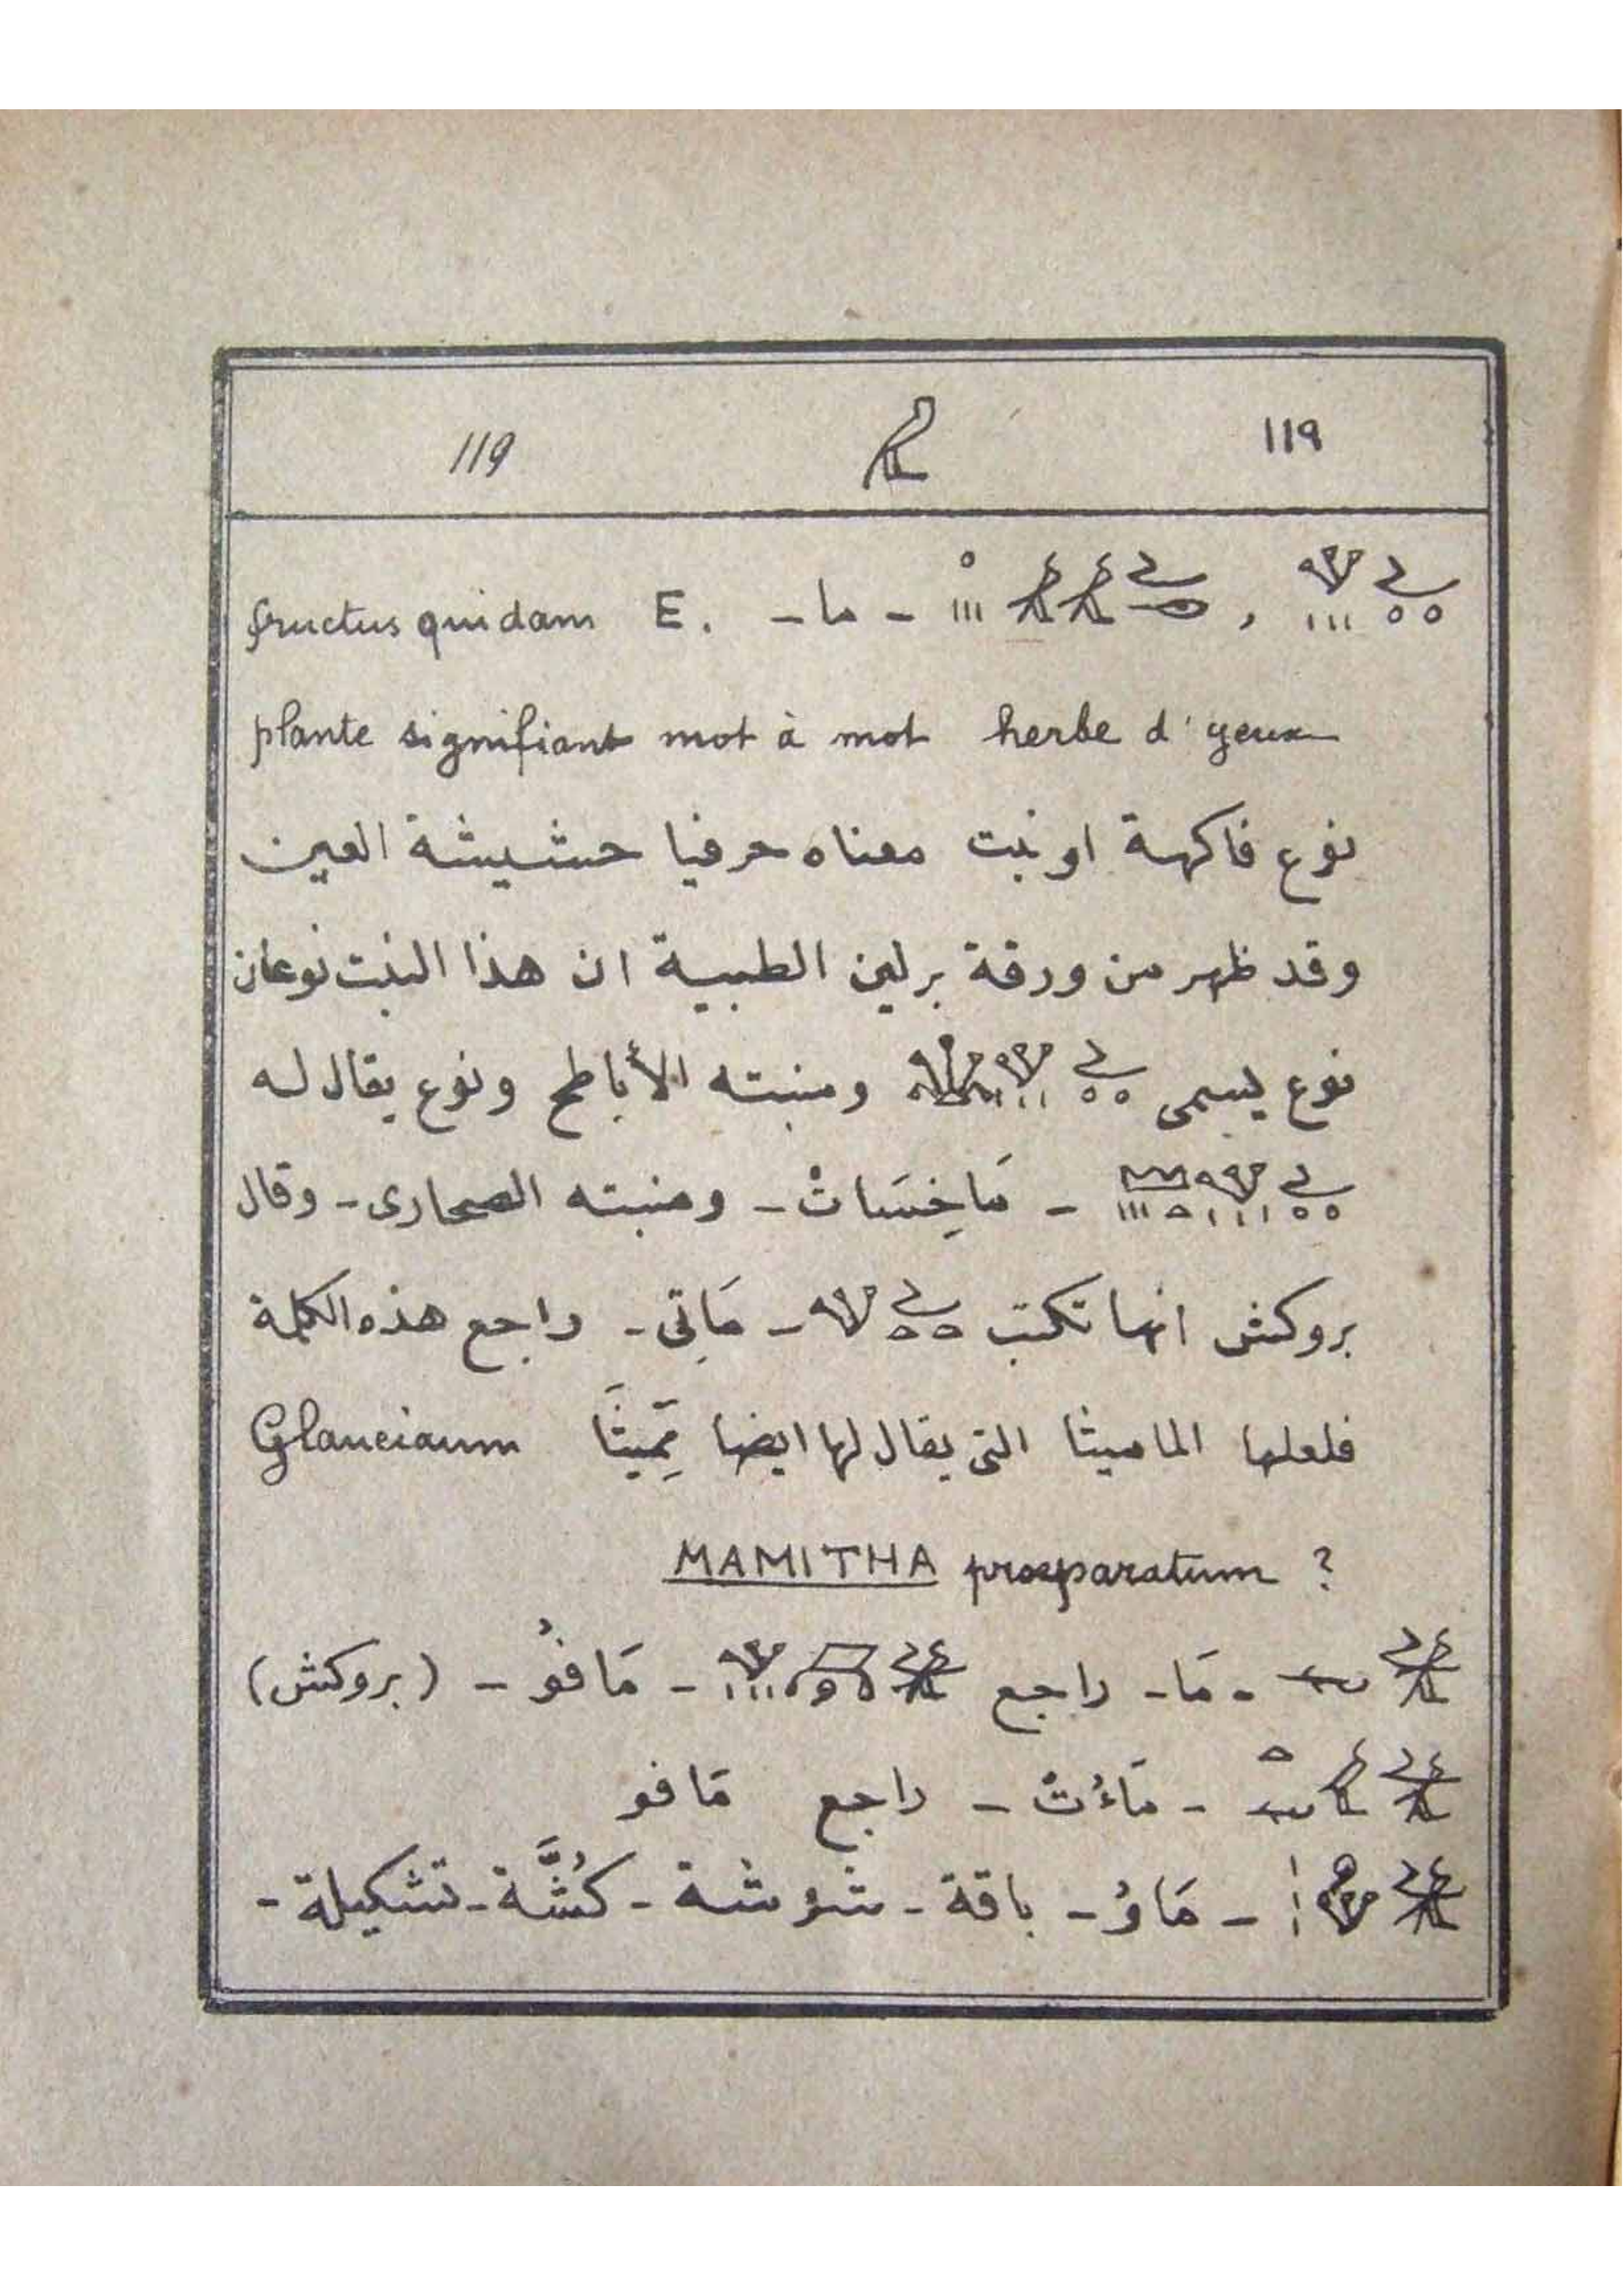 ١١٩ 119
- ما - fructus quidam E.
plante signifiant mot à mot herbe d'yeux
نوع فاكهة او نبت معناه حرفيا حشيشة العين
وقد ظهر من ورقة برلين الطبية ان هذا النبت نوعان
نوع يسمى ومنبته الأباطح ونوع يقال له
- مَاخِسَاتْ - ومنبته الصحارى - وقال
بروكش انها تكتب - مَاتِى - راجع هذه الكلمة
فلعلها الماميثا التى يقال لها ايضا مِّمِيثَا Glauciaum
MAMITHA praeparatum ?
- مَا - راجع - مَافوُ - (بروكش)
- مَاءُتْ - راجع مَافو
- مَاوُ - باقة - شوُشة - كُشَّة - تشكيلة -